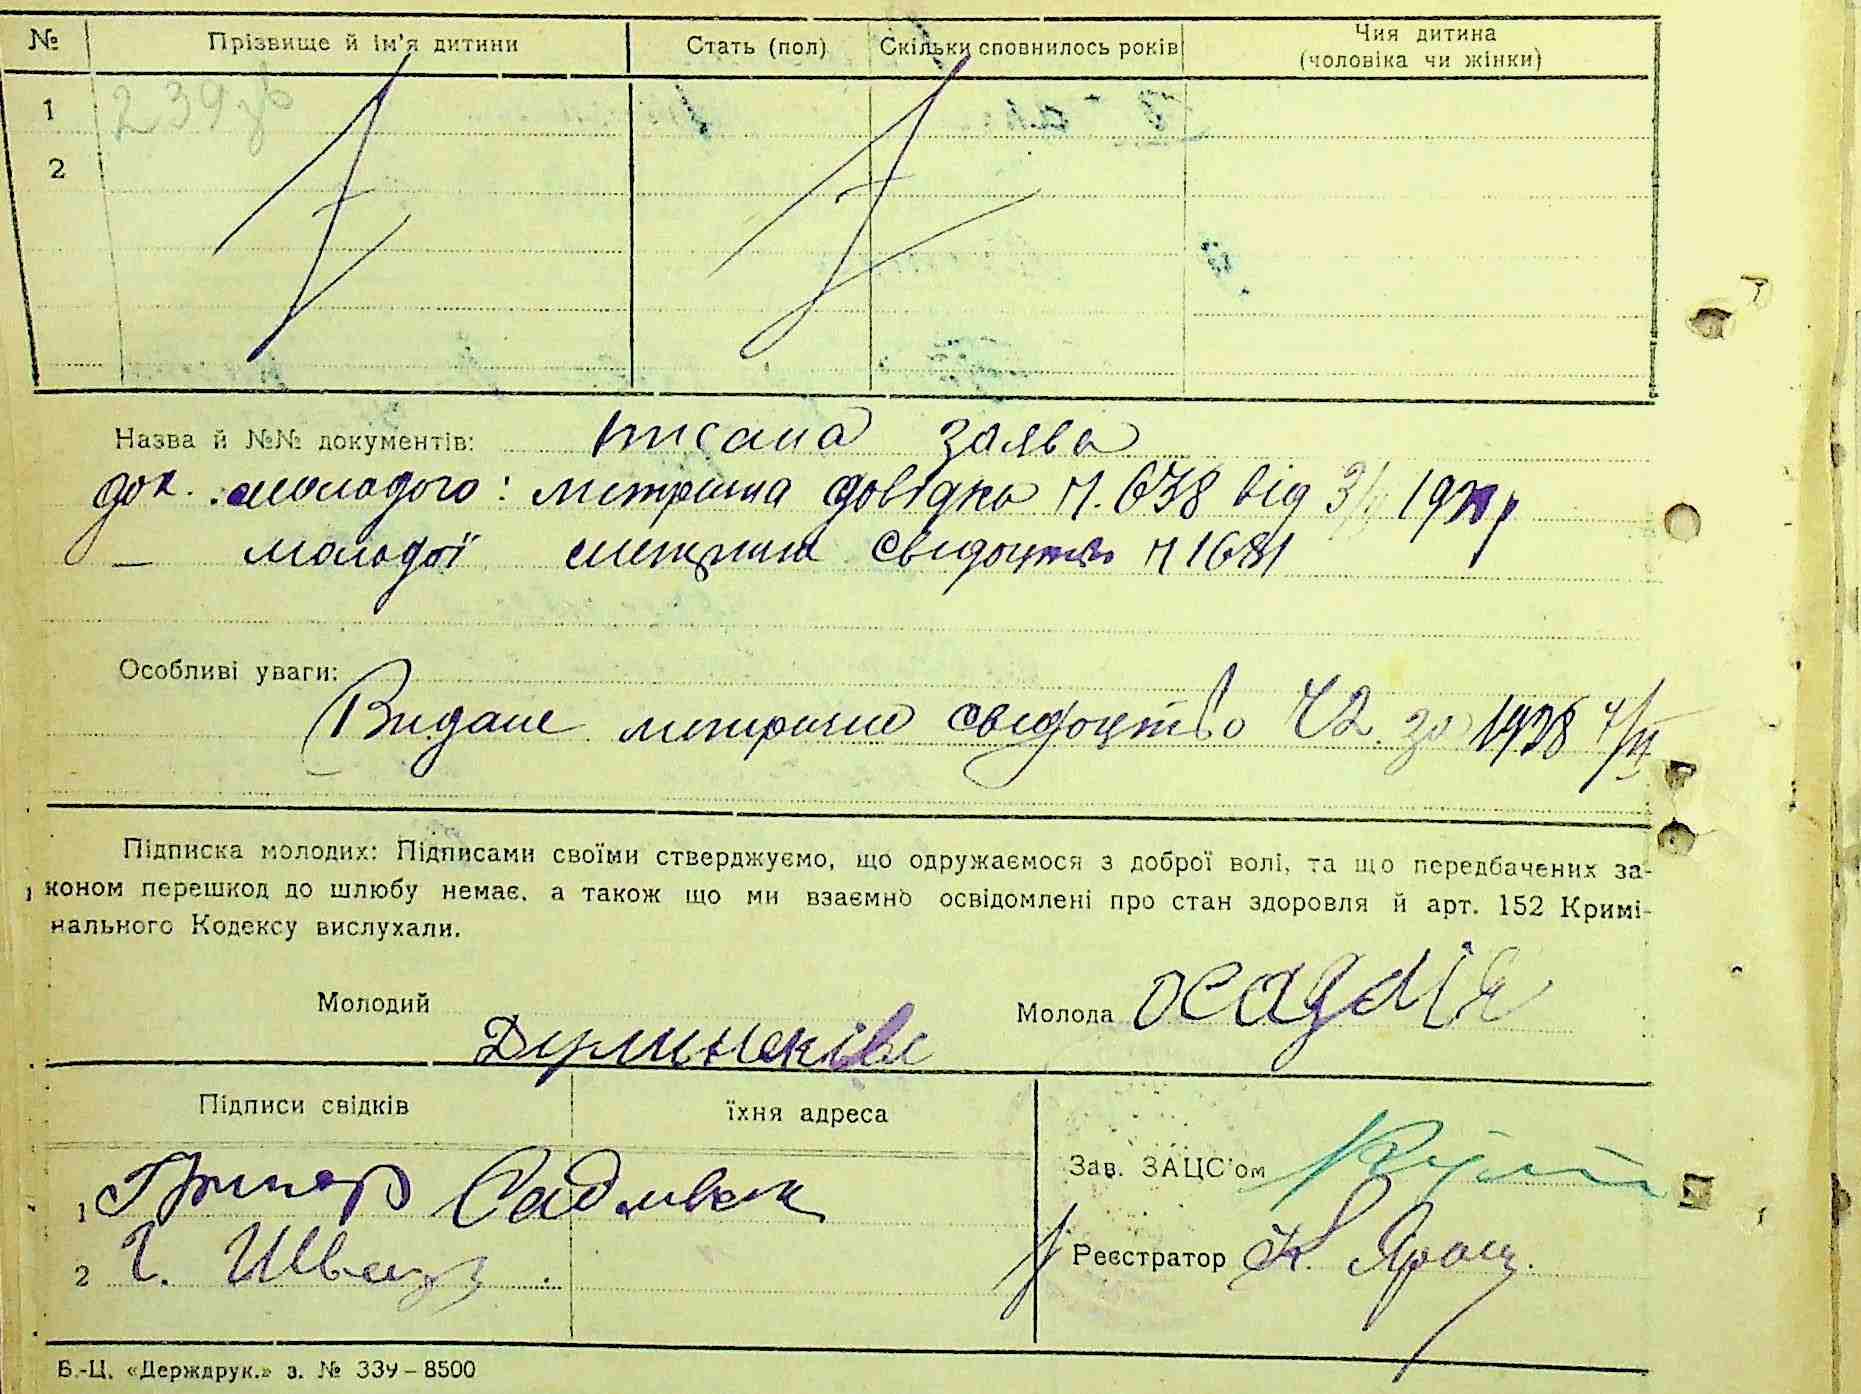 № Прізвище й ім'я дитини Стать (пол) Скільки сповнилось років Чия дитина (чоловіка чи жінки)
1 239
2
Назва й №№ документів: писана заява
док. молодого: метрична довідка Ч. 638 від
— молодої метричне свідоцтво Ч 1681
Особливі уваги:
Видане метричне свідоцтво Ч 2 за 1928
Підписка молодих: Підписами своїми стверджуємо, що одружаємося з доброї волі, та що передбачених за-
коном перешкод до шлюбу немає, а також що ми взаємно освідомлені про стан здоровля й арт. 152 Кримі-
нального Кодексу вислухали.
Молодий Молода
Підписи свідків їхня адреса
Зав. ЗАЦС'ом
1
2 Реєстратор К.
Б.-Ц. «Держдрук.» з. № 339–8500